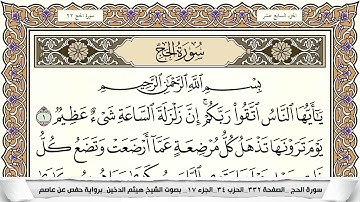 الجزء السابع عشر
سورة الحج ٢٢
سُورَةُ الحَجِّ
بِسْمِ ٱللَّهِ ٱلرَّحْمَٰنِ ٱلرَّحِيمِ
يَٰٓأَيُّهَا ٱلنَّاسُ ٱتَّقُوا۟ رَبَّكُمْ ۚ إِنَّ زَلْزَلَةَ ٱلسَّاعَةِ شَىْءٌ عَظِيمٌ ١
يَوْمَ تَرَوْنَهَا تَذْهَلُ كُلُّ مُرْضِعَةٍ عَمَّآ أَرْضَعَتْ وَتَضَعُ كُلُّ
سورة الحج _ الصفحة ٣٣٢_ الحزب ٣٤_ الجزء ١٧_ بصوت الشيخ هيثم الدخين_ برواية حفص عن عاصم